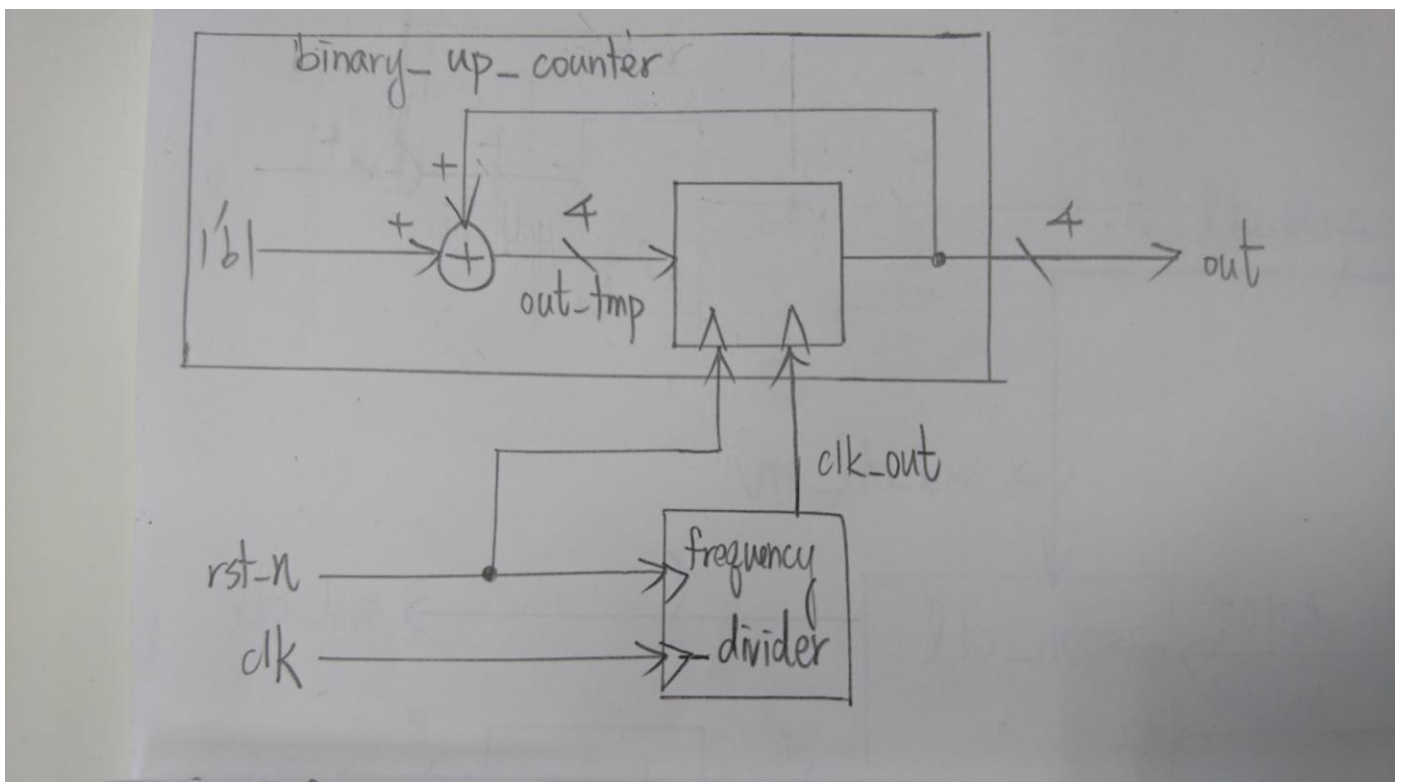 binary_up_counter
+
+
1'b1
+
4
out_tmp
4
out
clk_out
rst_n
clk
frequency
_divider